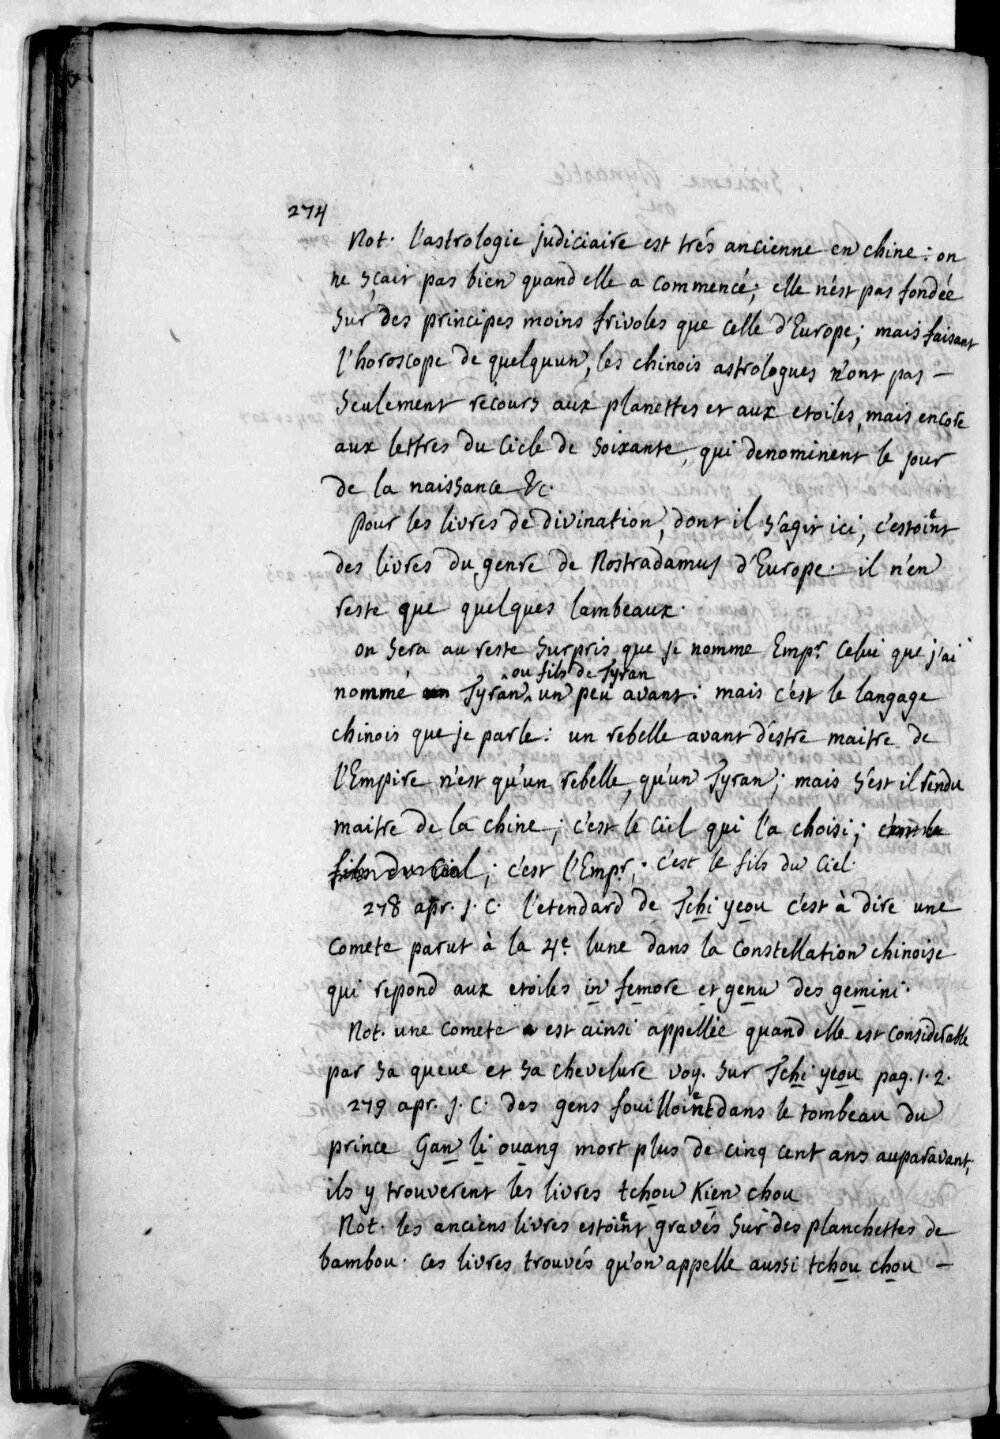 274
Not. l'astrologie judiciaire est trés ancienne en chine : on
ne sçait pas bien quand elle a commencé; elle n'est pas fondée
sur des principes moins frivoles que celle d'Europe; mais faisant
l'horoscope de quelquun, les chinois astrologues n'ont pas –
seulement recours aux planettes et aux etoiles, mais encore
aux lettres du cicle de soixante, qui denominent le jour
de la naissance &c.
pour les livres de divination, dont il s'agit ici, c'estoient
des livres du genre de Nostradamus d'Europe. il n'en
reste que quelques lambeaux.
on sera au reste surpris que je nomme Empr. celui que j'ai
ou fils de Tyran
nommé un Tyran un peu avant : mais c'est le langage
chinois que je parle : un rebelle avant d'estre maitre de
l'Empire n'est qu'un rebelle, qu'un Tyran; mais s'est il rendu
maitre de la chine; c'est le ciel qui l'a choisi; c'est le
fils du Ciel; c'est l'Empr.; c'est le fils du Ciel.
278 apr. J. C. l'etendard de Tchi yeou c'est à dire une
comete parut à la 4e. lune dans la constellation chinoise
qui repond aux etoiles in femore et genu des gemini.
Not. une comete est ainsi appellée quand elle est considerable
par sa queue et sa chevelure voy. sur Tchi yeou pag. 1. 2.
279 apr. J. C. des gens fouilloient dans le tombeau du
prince Gan li ouang mort plus de cinq cent ans auparavant;
ils y trouverent les livres tchou Kien chou
Not. les anciens livres estoient gravés sur des planchettes de
bambou. ces livres trouvés qu'on appelle aussi tchou chou –